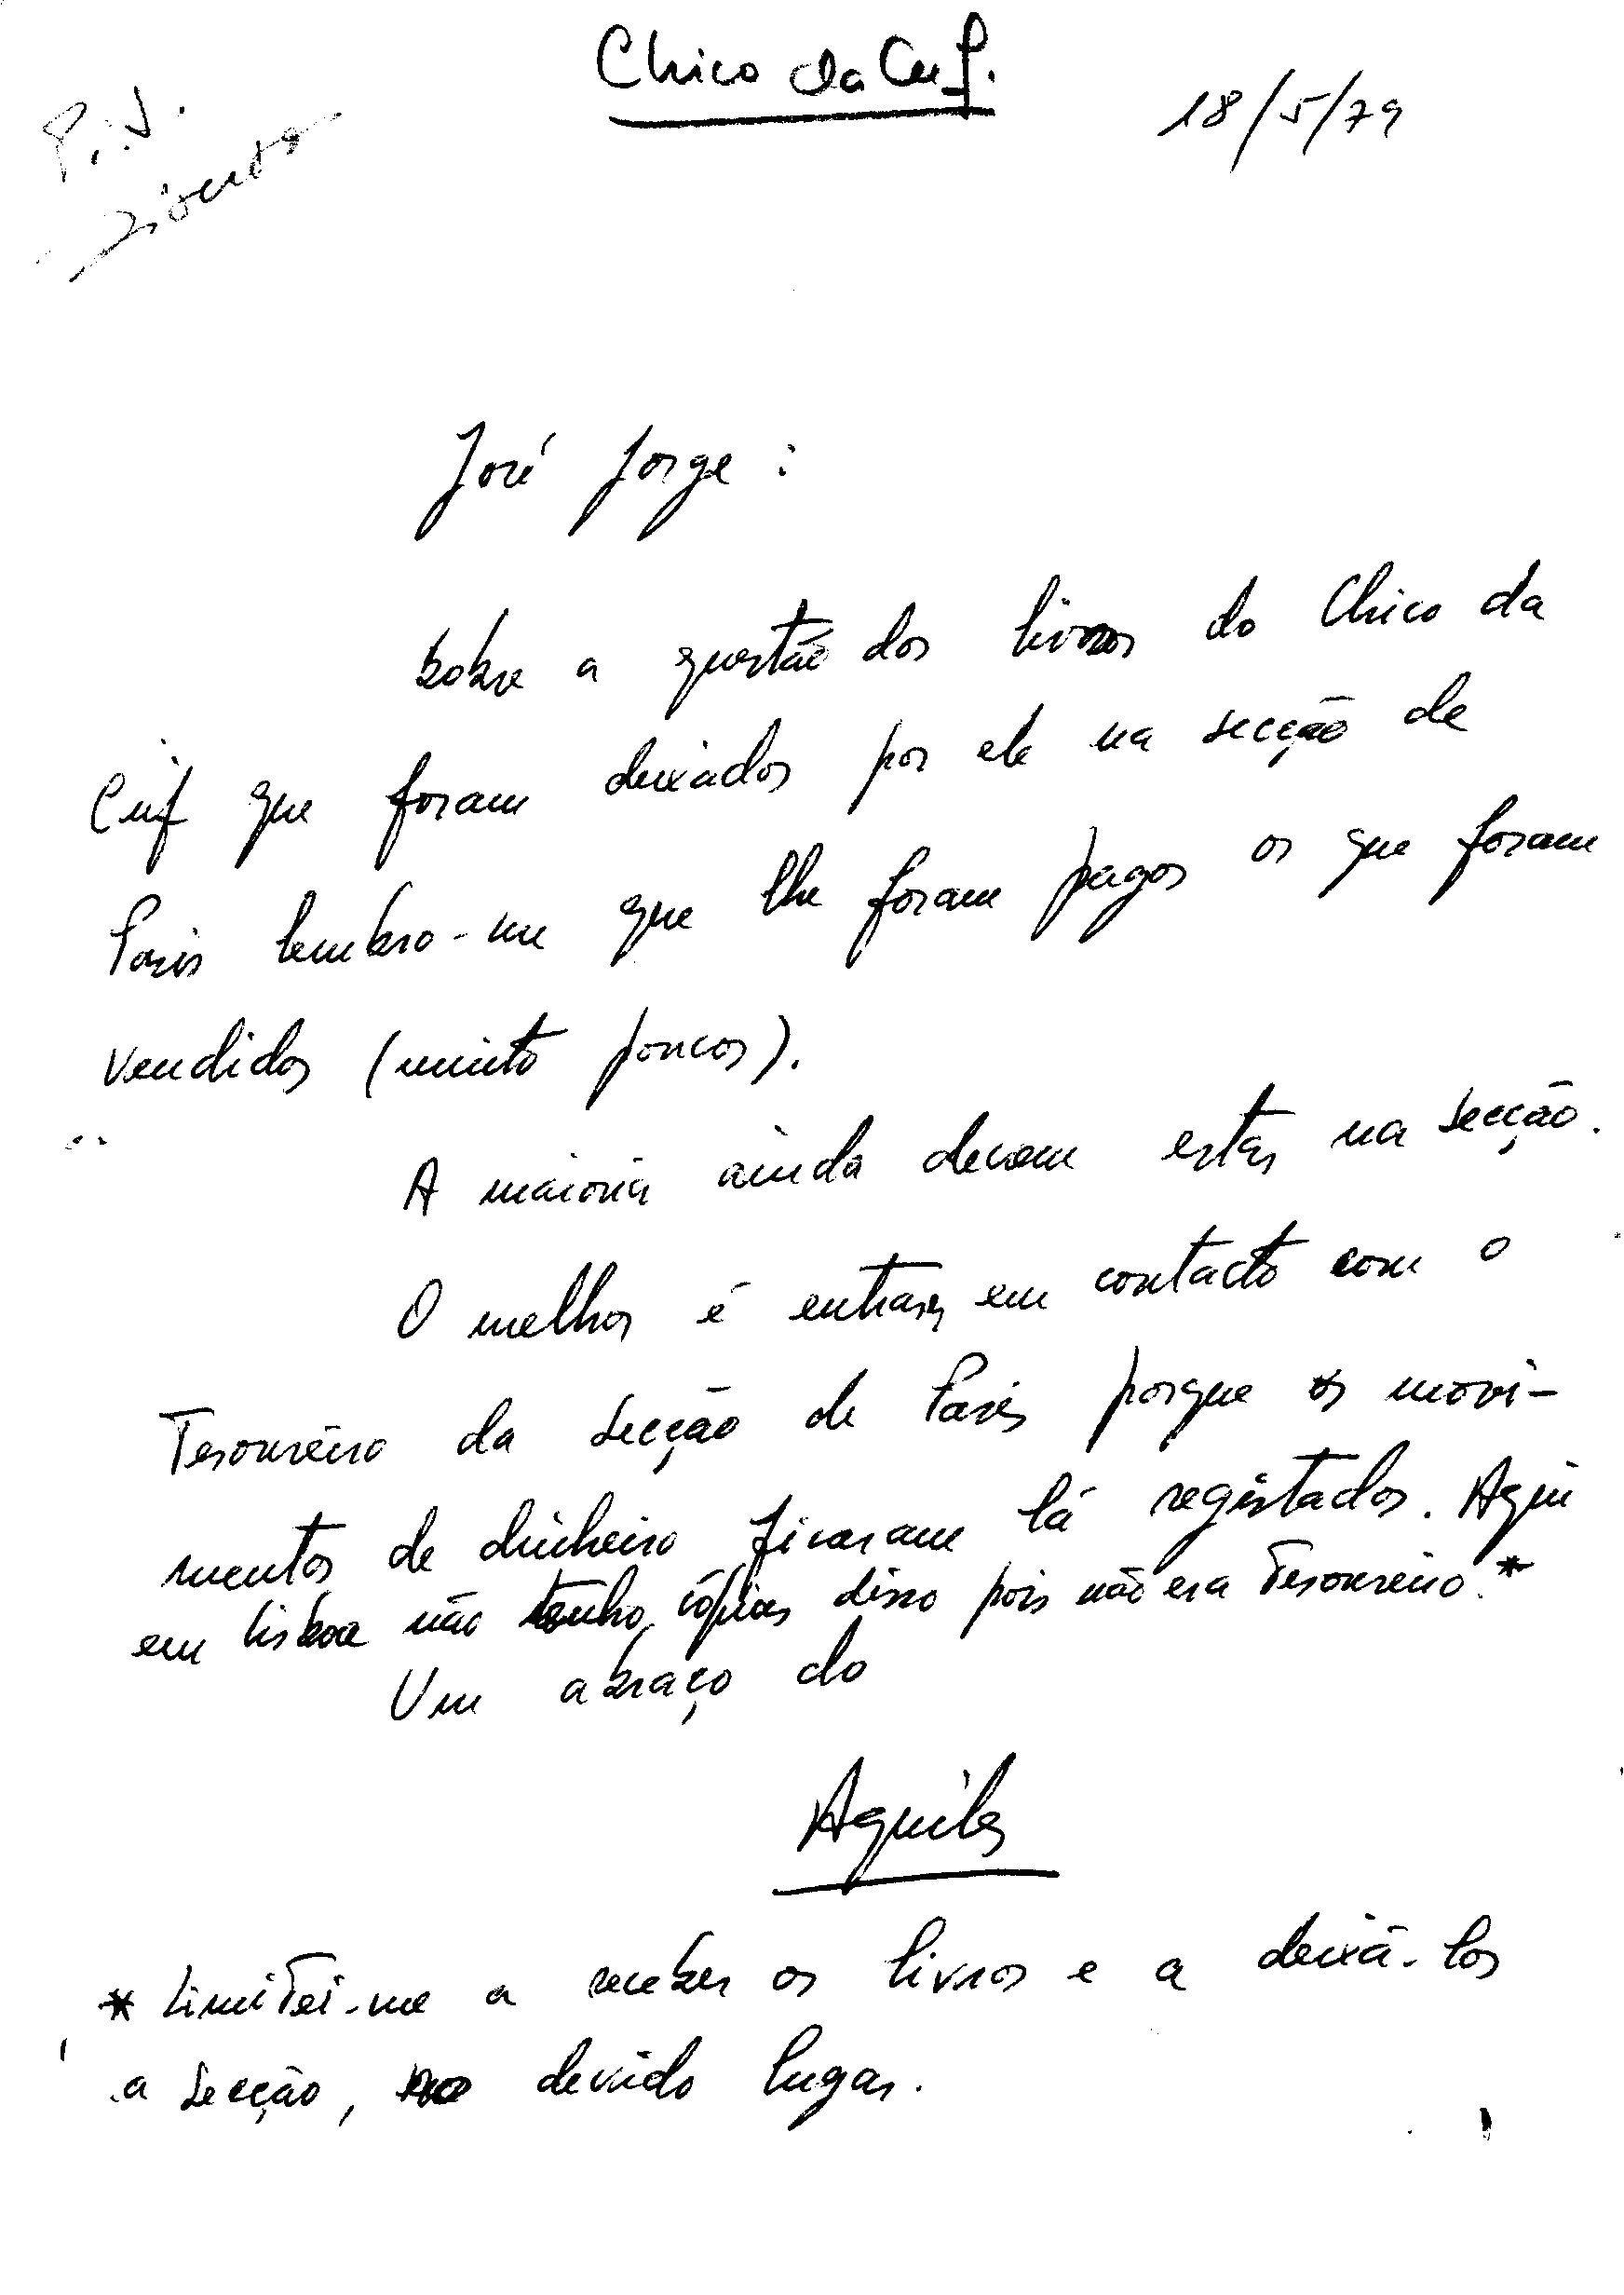 Chico da Cuf.
P. J.
18/5/79
José Jorge :
Sobre a questão dos livros do Chico da
Cuf que foram deixados por ele na secção de
Paris lembro-me que lhe foram pagos os que foram
vendidos (muito poucos).
A maioria ainda devem estar na secção.
O melhor é entrares em contacto com o
Tesoureiro da secção de Paris porque os movi-
mentos de dinheiro ficaram lá registados. Aqui
em Lisboa não tenho cópias disso pois não era Tesoureiro.*
Um abraço do
Aquiles
* Limitei-me a receber os livros e a deixá-los
a secção, no devido lugar.